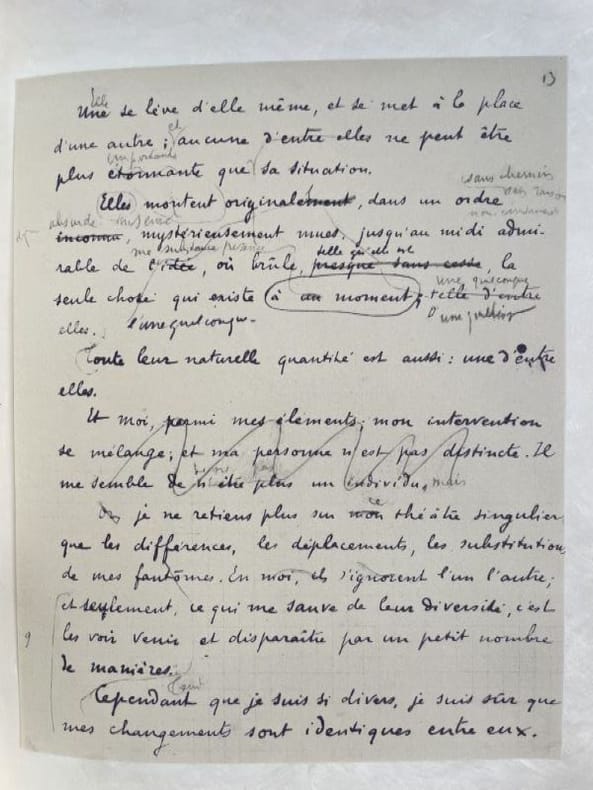 13
Elle
Une se lève d'elle même, et se met à la place
et
d'une autre ; aucune d'entre elles ne peut être
importante
plus étonnante que sa situation.
sans chemin
Elles montent originalement, dans un ordre
sans raison
absurde
inconnu, mystérieusement mues, jusqu'au midi admi-
ma substance présence telle qu'elle est
rable de l'idée, où brûle, presque sans cesse, la
une quelconque
seule chose qui existe à un moment ; telle d'entre
elles. l'une quelconque. D'une
Toute leur naturelle quantité est aussi : une d'entre
elles.
Et moi, parmi mes éléments, mon intervention
se mélange ; et ma personne n'est pas distincte. Il
me semble de n'être plus un individu, mais
Or je ne retiens plus sur mon théâtre singulier
ce
que les différences, les déplacements, les substitutions
de mes fantômes. En moi, ils s'ignorent l'un l'autre ;
et seulement, ce qui me sauve de leur diversité, c'est
9 les voir venir et disparaître par un petit nombre
de manières.
Cependant que je suis si divers, je suis sûr que
mes changements sont identiques entre eux.